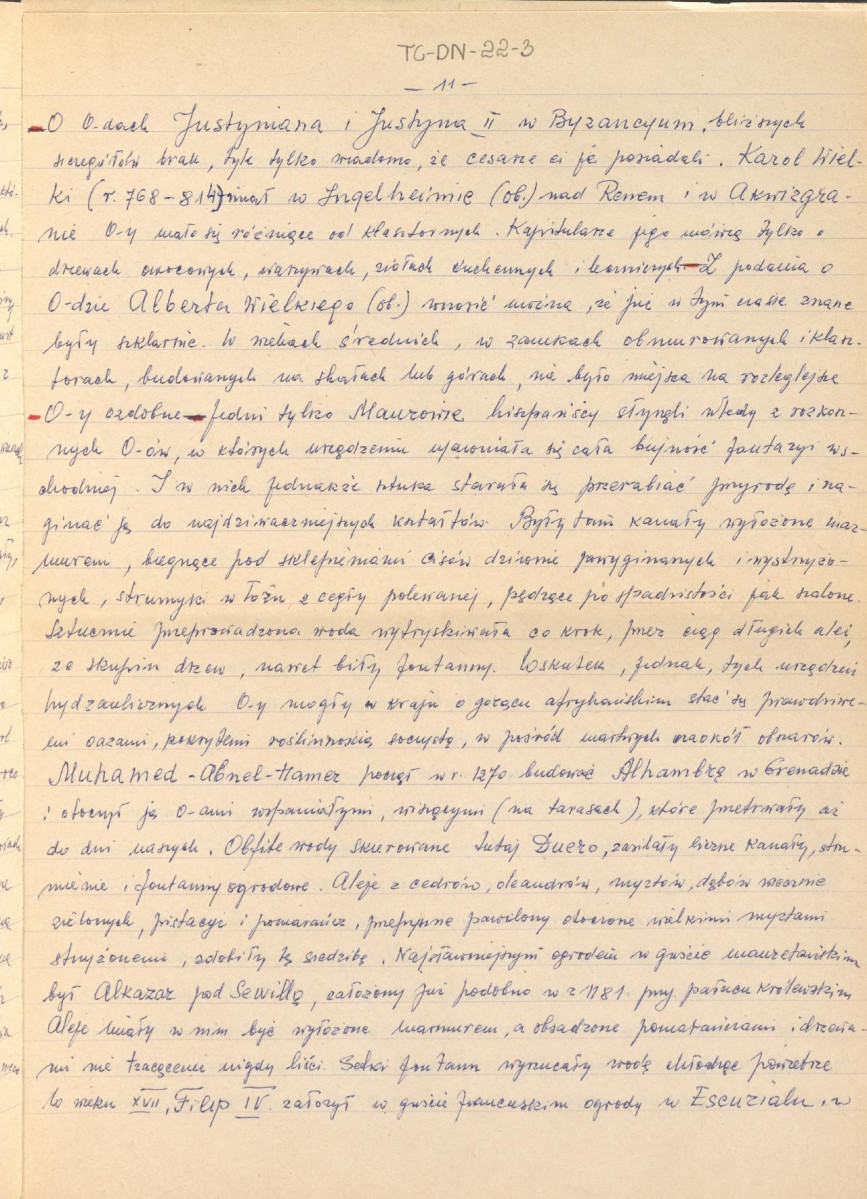 TG-DN-22-3
- 11 -
O O-dach Justyniana i Justyna II w Byzancyum, bliższych
szczegółów brak, tyle tylko wiadomo, że cesarze ci je posiadali. Karol Wiel-
ki (r. 768-814) miał w Ingelheimie (ob.) nad Renem i w Akwizgra-
nie O-y mało się różniące od klasztornych. Kapitularze jego mówią tylko o
drzewach owocowych, warzywach, ziołach kuchennych i leczniczych - Z podania o
O-dzie Alberta Wielkiego (ob.) wnosić można, że już w tym czasie znane
były szklarnie. W wiekach średnich, w zamkach obmurowanych i klasz-
torach, budowanych na skałach lub górach, nie było miejsca na rozleglejsze
O-y ozdobne - Jedni tylko Maurowie hiszpańscy słynęli wtedy z rozkosz-
nych O-ów, w których urządzeniu ujawniała się cała bujność fantazyi ws-
chodniej. I w nich jednakże sztuka starała się przerabiać przyrodę i na-
ginać ją do najdziwaczniejszych kształtów. Były tam kanały wyłożone mar-
murem, biegnące pod sklepieniami cisów dziwnie powyginanych i wystrzyżo-
nych, strumyki w łożu z cegły polewanej, pędzące po spadzistości jak szalone.
Sztucznie przeprowadzona woda wytryskiwała co krok, przez ciąg długich alei,
ze skupin drzew, nawet biły fontanny. Wskutek, jednak, tych urządzeń
hydraulicznych O-y mogły w kraju o gorącu afrykańskim stać się prawdziwe-
mi oazami, pokrytemi roślinnością soczystą, w pośród martwych naokół obszarów.
Muhamed-Abnel-Hamer począł w r. 1270 budować Alhambrę w Grenadzie
i otoczył ją O-ami wspaniałymi, wiszącymi (na tarasach), które przetrwały aż
do dni naszych. Obfite wody skierowane tutaj Duero, zasilały liczne kanały, stru-
mienie i fontanny ogrodowe. Aleje z cedrów, oleandrów, myrtów, dębów wiecznie
zielonych, pistacyi i pomarańcz, przepyszne pawilony otoczone wielkimi myrtami
strzyżonemi, zdobiły tę siedzibę. Najsławniejszym ogrodem w guście mauretańskim
był Alkazar pod Sewillą, założony już podobno w r 1181. przy pałacu królewskim
Aleje miały w nim być wyłożone marmurem, a obsadzone pomarańczami i drzewa-
mi nie tracącemi nigdy liści. Setki fontann wyrzucały wodę chłodząc powietrze
W wieku XVII, Filip IV. założył w guście francuskim ogrody w Escurialu, w